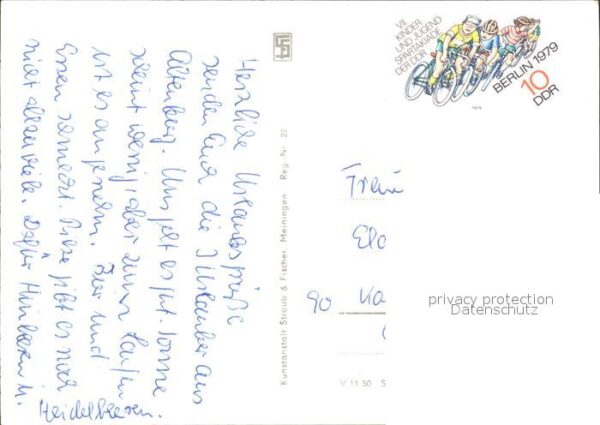 Herzliche Urlaubsgrüße
senden Euch die 3 Urlauber aus
Altenberg. Uns geht es gut. Sonne
scheint wenig, aber zum Laufen
ist es angenehm. Bier und
Essen schmeckt. Pilze gibt es noch
nicht allzuviele. Dafür Himbeern u.
Heidelbeeren.
Kunstanstalt Straub & Fischer, Meiningen Reg.-Nr. 22
V 11 50 S
VII.
KINDER
UND JUGEND
SPARTAKIADE
DER DDR
BERLIN 1979
10
DDR
1979
Frau
90
privacy protection
Datenschutz